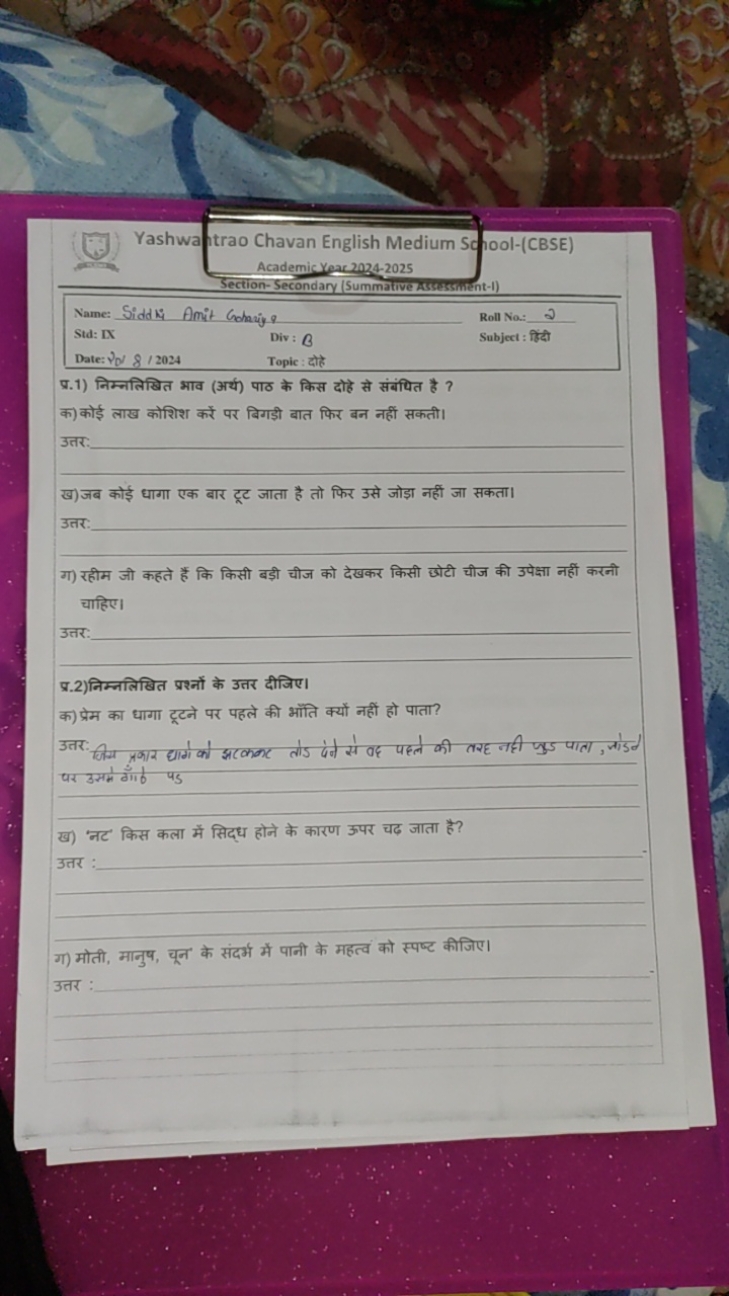 Yashwantrao Chavan English Medium School-(CBSE)
Academic Year 2024-2025
Section- Secondary (Summative Assessment-I)
Name: Siddhi Amit Roll No.: 2
Std: IX Div : B Subject : हिंदी
Date: 8 / 2024 Topic : दोहे
प्र.1) निम्नलिखित भाव (अर्थ) पाठ के किस दोहे से संबंधित है ?
क)कोई लाख कोशिश करें पर बिगड़ी बात फिर बन नहीं सकती।
उत्तर:
ख)जब कोई धागा एक बार टूट जाता है तो फिर उसे जोड़ा नहीं जा सकता।
उत्तर:
ग) रहीम जी कहते हैं कि किसी बड़ी चीज को देखकर किसी छोटी चीज की उपेक्षा नहीं करनी
चाहिए।
उत्तर:
प्र.2)निम्नलिखित प्रश्नों के उत्तर दीजिए।
क)प्रेम का धागा टूटने पर पहले की भाँति क्यों नहीं हो पाता?
उत्तर: जिस प्रकार धागे को झटककर तोड देने से वह पहले की तरह नही जुड पाता , जोडने
पर उसमे गाँठ पड
ख) 'नट' किस कला में सिद्ध होने के कारण ऊपर चढ़ जाता है?
उत्तर :
ग) मोती, मानुष, चून' के संदर्भ में पानी के महत्व को स्पष्ट कीजिए।
उत्तर :